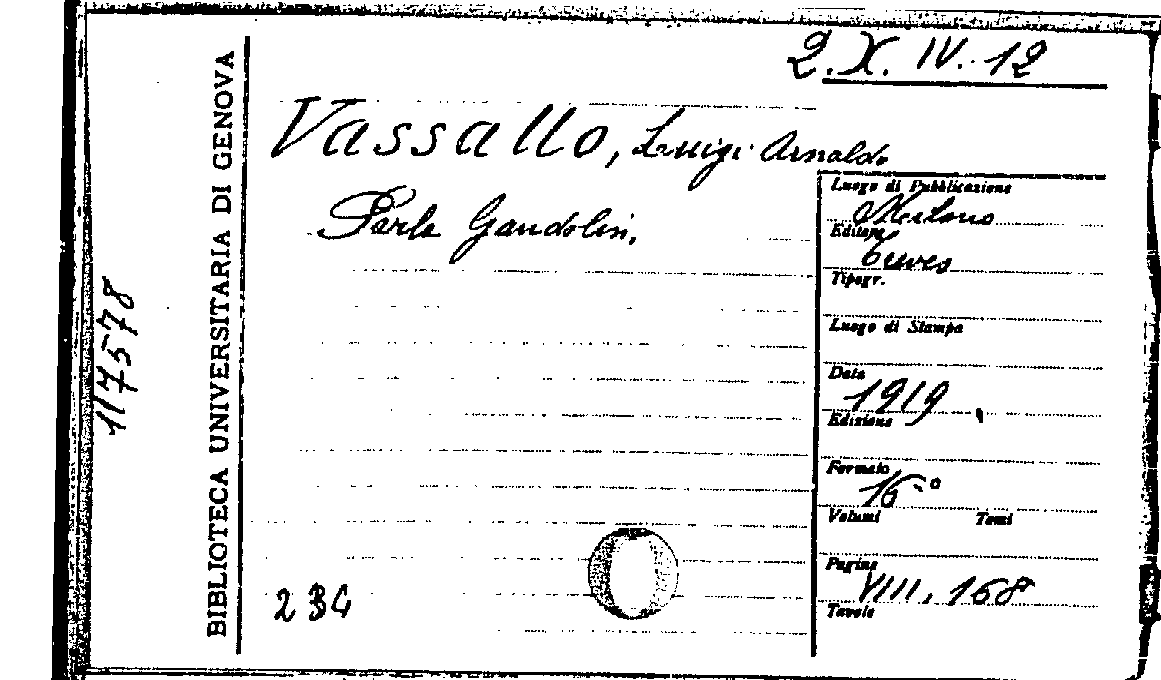 2.X.IV.12
Vassallo, Luigi Arnaldo
Parla Gandolin.
Luogo di Pubblicazione
Milano
Editore
Treves
Tipogr.
Luogo di Stampa
Data
1919
Edizione
Formato
16.°
Volumi Tomi
Pagine
VIII, 168
Tavole
234
BIBLIOTECA UNIVERSITARIA DI GENOVA
117578